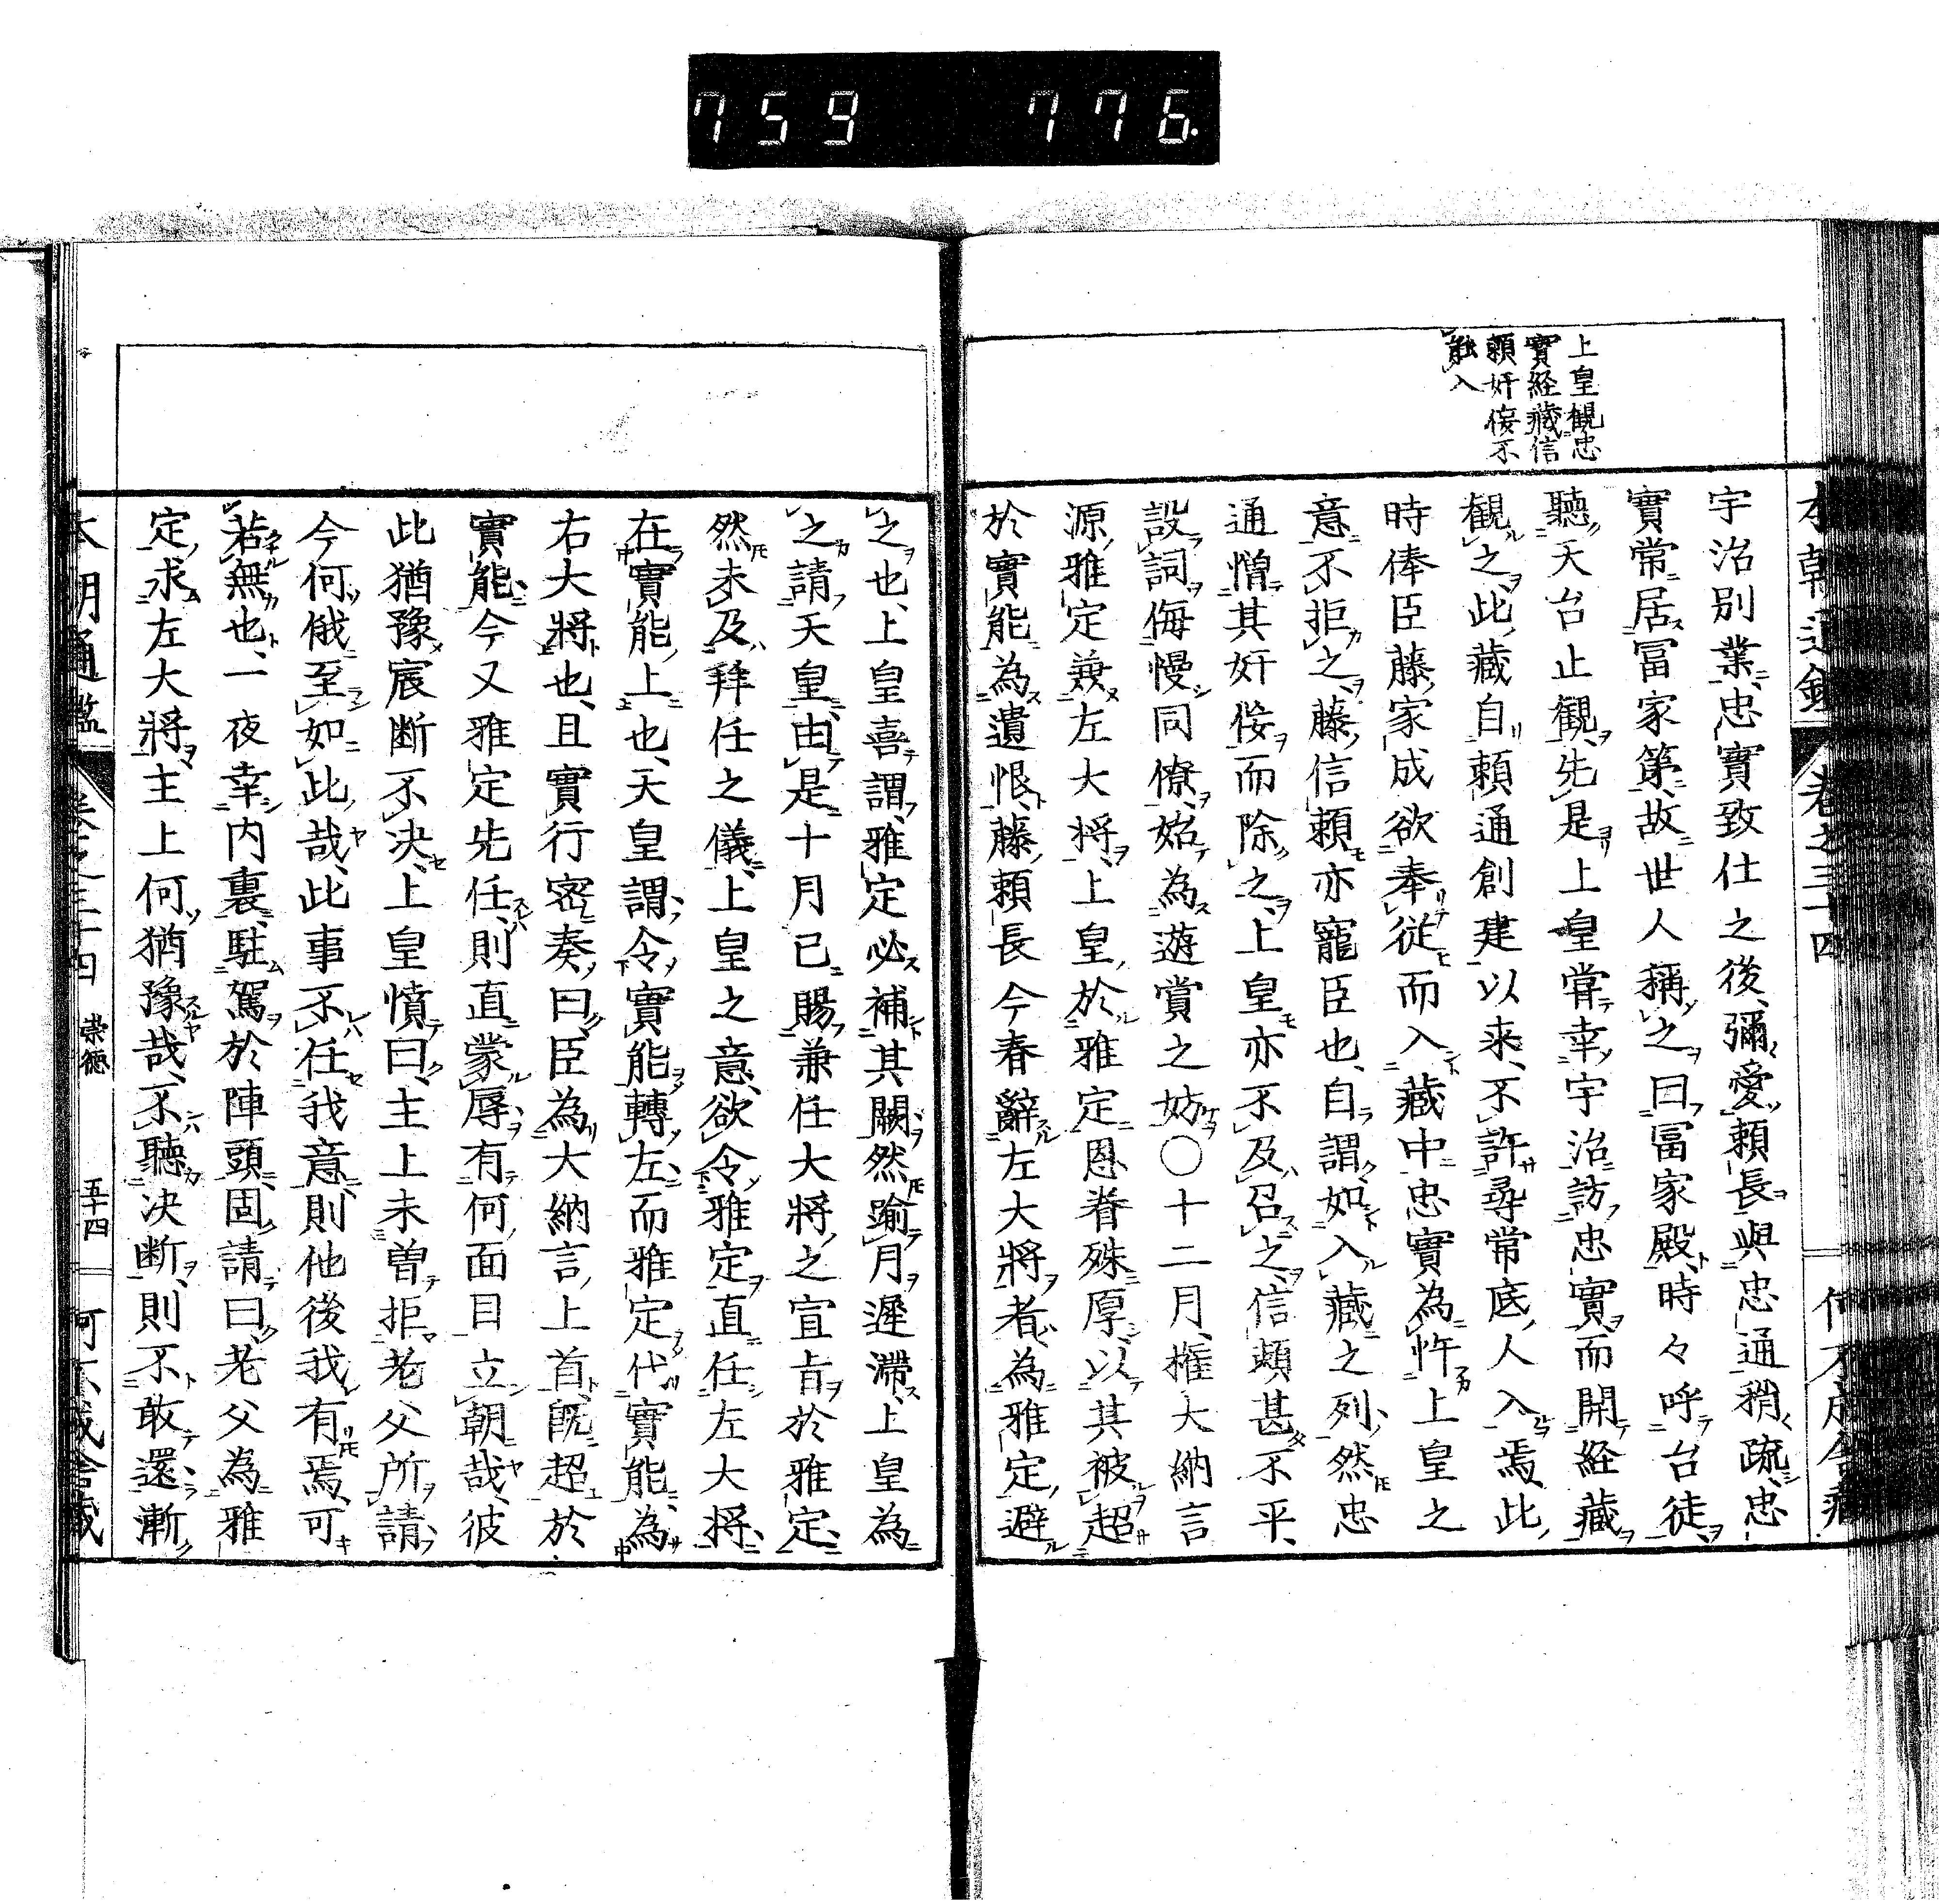 759 776.
上皇観忠
實経藏信
頼奸佞不
能入
宇治別業忠實致仕之後彌愛頼長與忠通稍疏忠
實常居冨家第故世人稱之曰冨家殿時々呼台徒
聽天台止観先是上皇嘗幸宇治訪忠實而開経藏
観之此藏自頼通創建以来不許尋常底人入焉此
時俸臣藤家成欲奉従而入藏中忠實為忤上皇之
意不拒之藤信頼亦寵臣也自謂如入藏之列然忠
通憎其奸佞而除之上皇亦不及召之信頼甚不平
設詞侮慢同僚始為遊賞之妨〇十二月権大納言
源雅定兼左大将上皇於雅定恩眷殊厚以其被超
於實能為遺恨藤頼長今春辭左大将者為雅定避
之也上皇喜謂雅定必補其闕然踰月遲滞上皇為
之請天皇由是十月已賜兼任大将之宣旨於雅定
然未及拜任之儀上皇之意欲令雅定直任左大将
在實能上也天皇謂令實能轉左而雅定代實能為
右大将也且實行密奏曰臣為大納言上首既超於
實能今又雅定先任則直蒙辱有何面目立朝哉彼
此猶豫宸断不決上皇憤曰主上未曽拒老父所請
今何俄至如此哉此事不任我意則他後我有焉可
若無也一夜幸内裏駐駕於陣頭固請曰老父為雅
定求左大將主上何猶豫哉不聽決断則不敢還漸
本朝通鑑 巻之三十四 崇徳 五十四